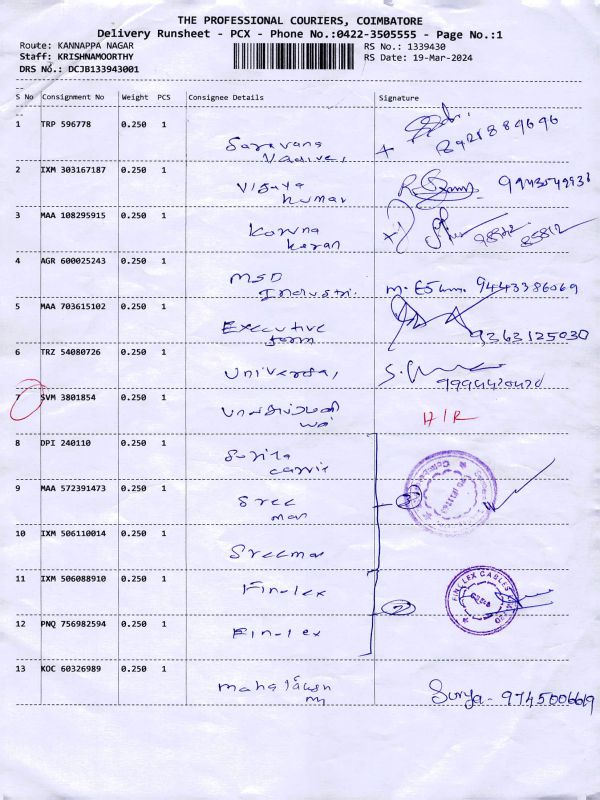 THE PROFESSIONAL COURIERS, COIMBATORE
Delivery Runsheet - PCX - Phone No.:0422-3505555 - Page No.:1
Route: KANNAPPA NAGAR
Staff: KRISHNAMOORTHY
DRS No.: DCJB133943001
RS No.: 1339430
RS Date: 19-Mar-2024
S No Consignment No Weight PCS Consignee Details Signature
1 TRP 596778 0.250 1
Saravana
Vadivel
2 IXM 303167187 0.250 1
Vijaya
kumar
3 MAA 108295915 0.250 1
Karuna
karan
4 AGR 600025243 0.250 1
MSD
Industri.
9443386069
5 MAA 703615102 0.250 1
Executive
form
9363125030
6 TRZ 54080726 0.250 1
Universal
7 SVM 3801854 0.250 1
H/R
8 DPI 240110 0.250 1
9 MAA 572391473 0.250 1
Sree
mar
3
10 IXM 506110014 0.250 1
Sreemar
11 IXM 506088910 0.250 1
Fin-lex
2
FINE LEX CABLES
12 PNQ 756982594 0.250 1
Fin-lex
13 KOC 60326989 0.250 1
Surya - 9745006619